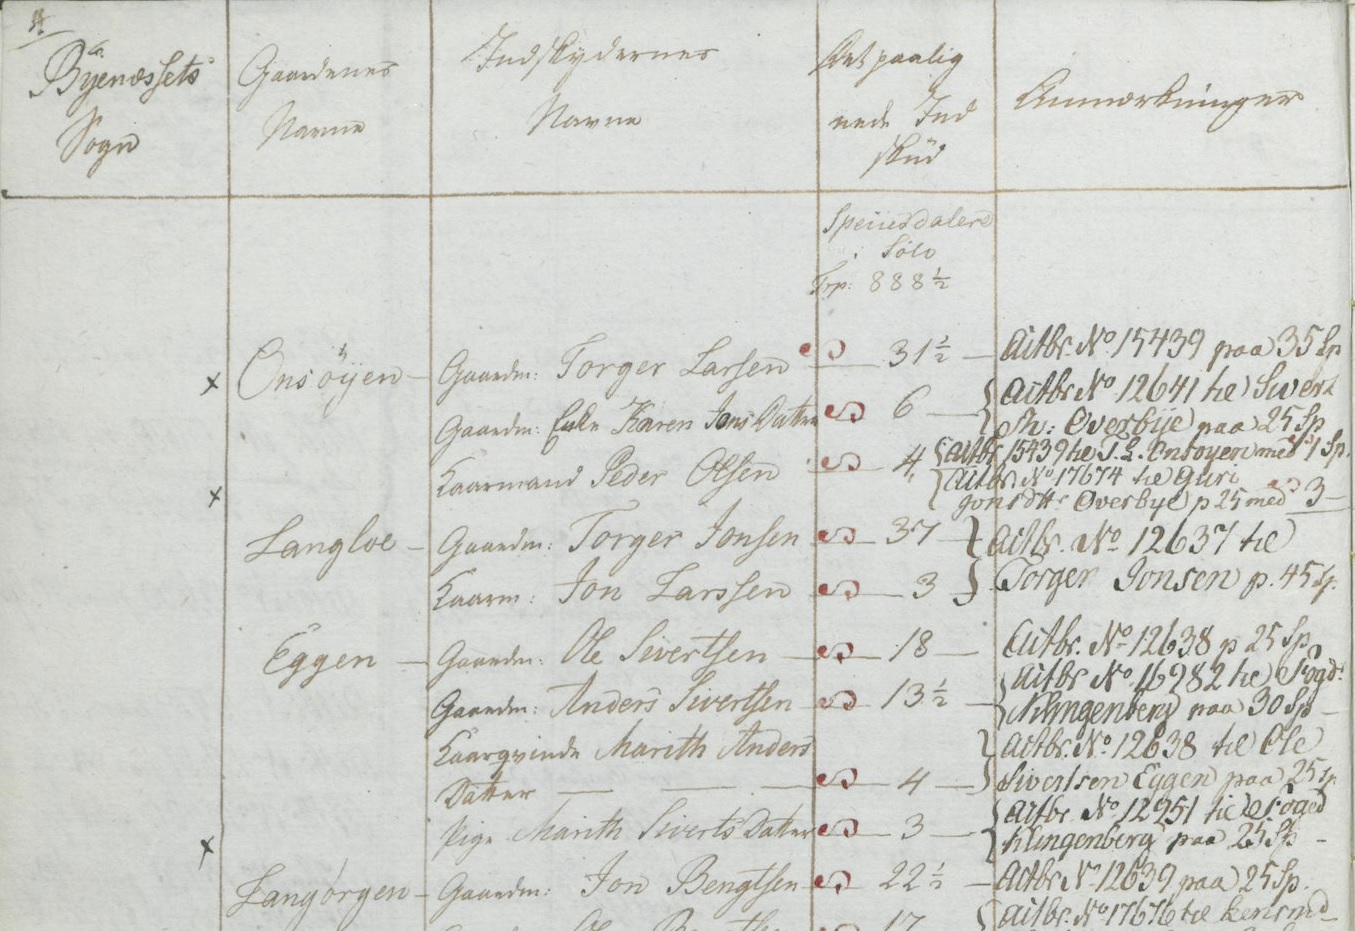 Byenæssets Sogn
Gaardenes Navne
Indskydernes Navne
Det paalignede Indskud
Anmærkninger
Speciesdalere
Sølv
Trp: 888½
Onsöyen – Gaardm: Torger Larsen – 31½ – Actbr. No 15439 paa 35 Sp
Gaardm: Enke Karen Jons Datter – 6 – Actbr No 12641 til Sivert
Overbye paa 25 Sp
Kaarmand Peder Olsen – 4 Actbr 15439 til T. L. Onsoyen med 1 Sp.
Actbr No 17674 til Guri
Overbye p 25 med 3 –
Langloe – Gaardm: Torger Jonsen – 37 – Actbr. No 12637 til
Kaarm: Jon Larssen – 3 Torger Jonsen p. 45 Sp.
Eggen – Gaardm: Ole Sivertsen – 18 – Actbr. No 12638 p 25 Sp
Gaardm: Anders Sivertsen – 13½ – Actbr No 16982 til Fogd
Klingenberg paa 30 Sp –
Kaarqvinde Marith Anders Actbr. No 12638 til Ole
Datter – – – 4 – Sivertsen Eggen paa 25 sp
Pige Marith Siverts Datter – 3 – Actbr No 12951 til Foged
Klingenberg paa 25 Sp –
Langörgen – Gaardm: Jon Bengtsen – 22½ – Actbr No 12639 paa 25 Sp.
17 Actbr. No 17676 til